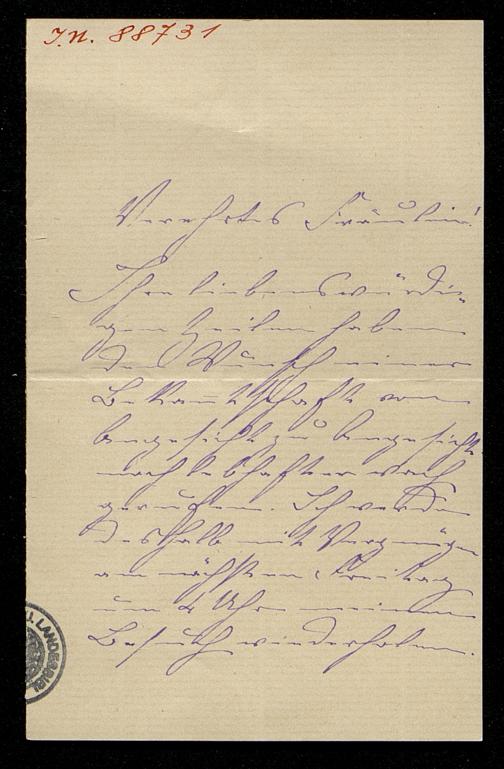 I.N. 88731
Verehrtes Fräulein!
Ihre liebenswürdi-
gen Zeilen haben
den Wunsch einer
Bekan̄tschaft von
Angesicht zu Angesicht
noch lebhafter wach
gerufen. Ich werde
deshalb mit Vergnügen
am nächsten Freitag
um 4 Uhr meinen
Besuch wiederholen.